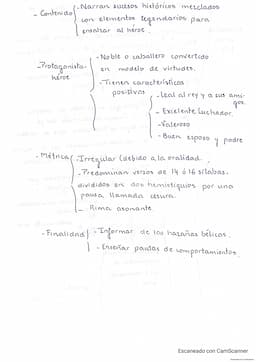 - Narran sucesos históricos mezclados
- Contenido
con elementos legendarios para
ensalzar al héroe.
- Noble o caballero convertido
- Protagonista-
héroe
en modelo de virtudes.
- Tienen características
positivas
- Leal al rey y a sus ami-
gos.
- Excelente luchador.
- Valeroso
- Buen esposo y padre
- Métrica
- Irregular (debido a la oralidad.
- Predominan versos de 14 ó 16 sílabas,
divididos en dos hemistiquios por una
pausa llamada cesura.
- Rima asonante.
- Finalidad
- Informar de las hazañas bélicas.
- Enseñar pautas de comportamientos.
Escaneado con CamScanner